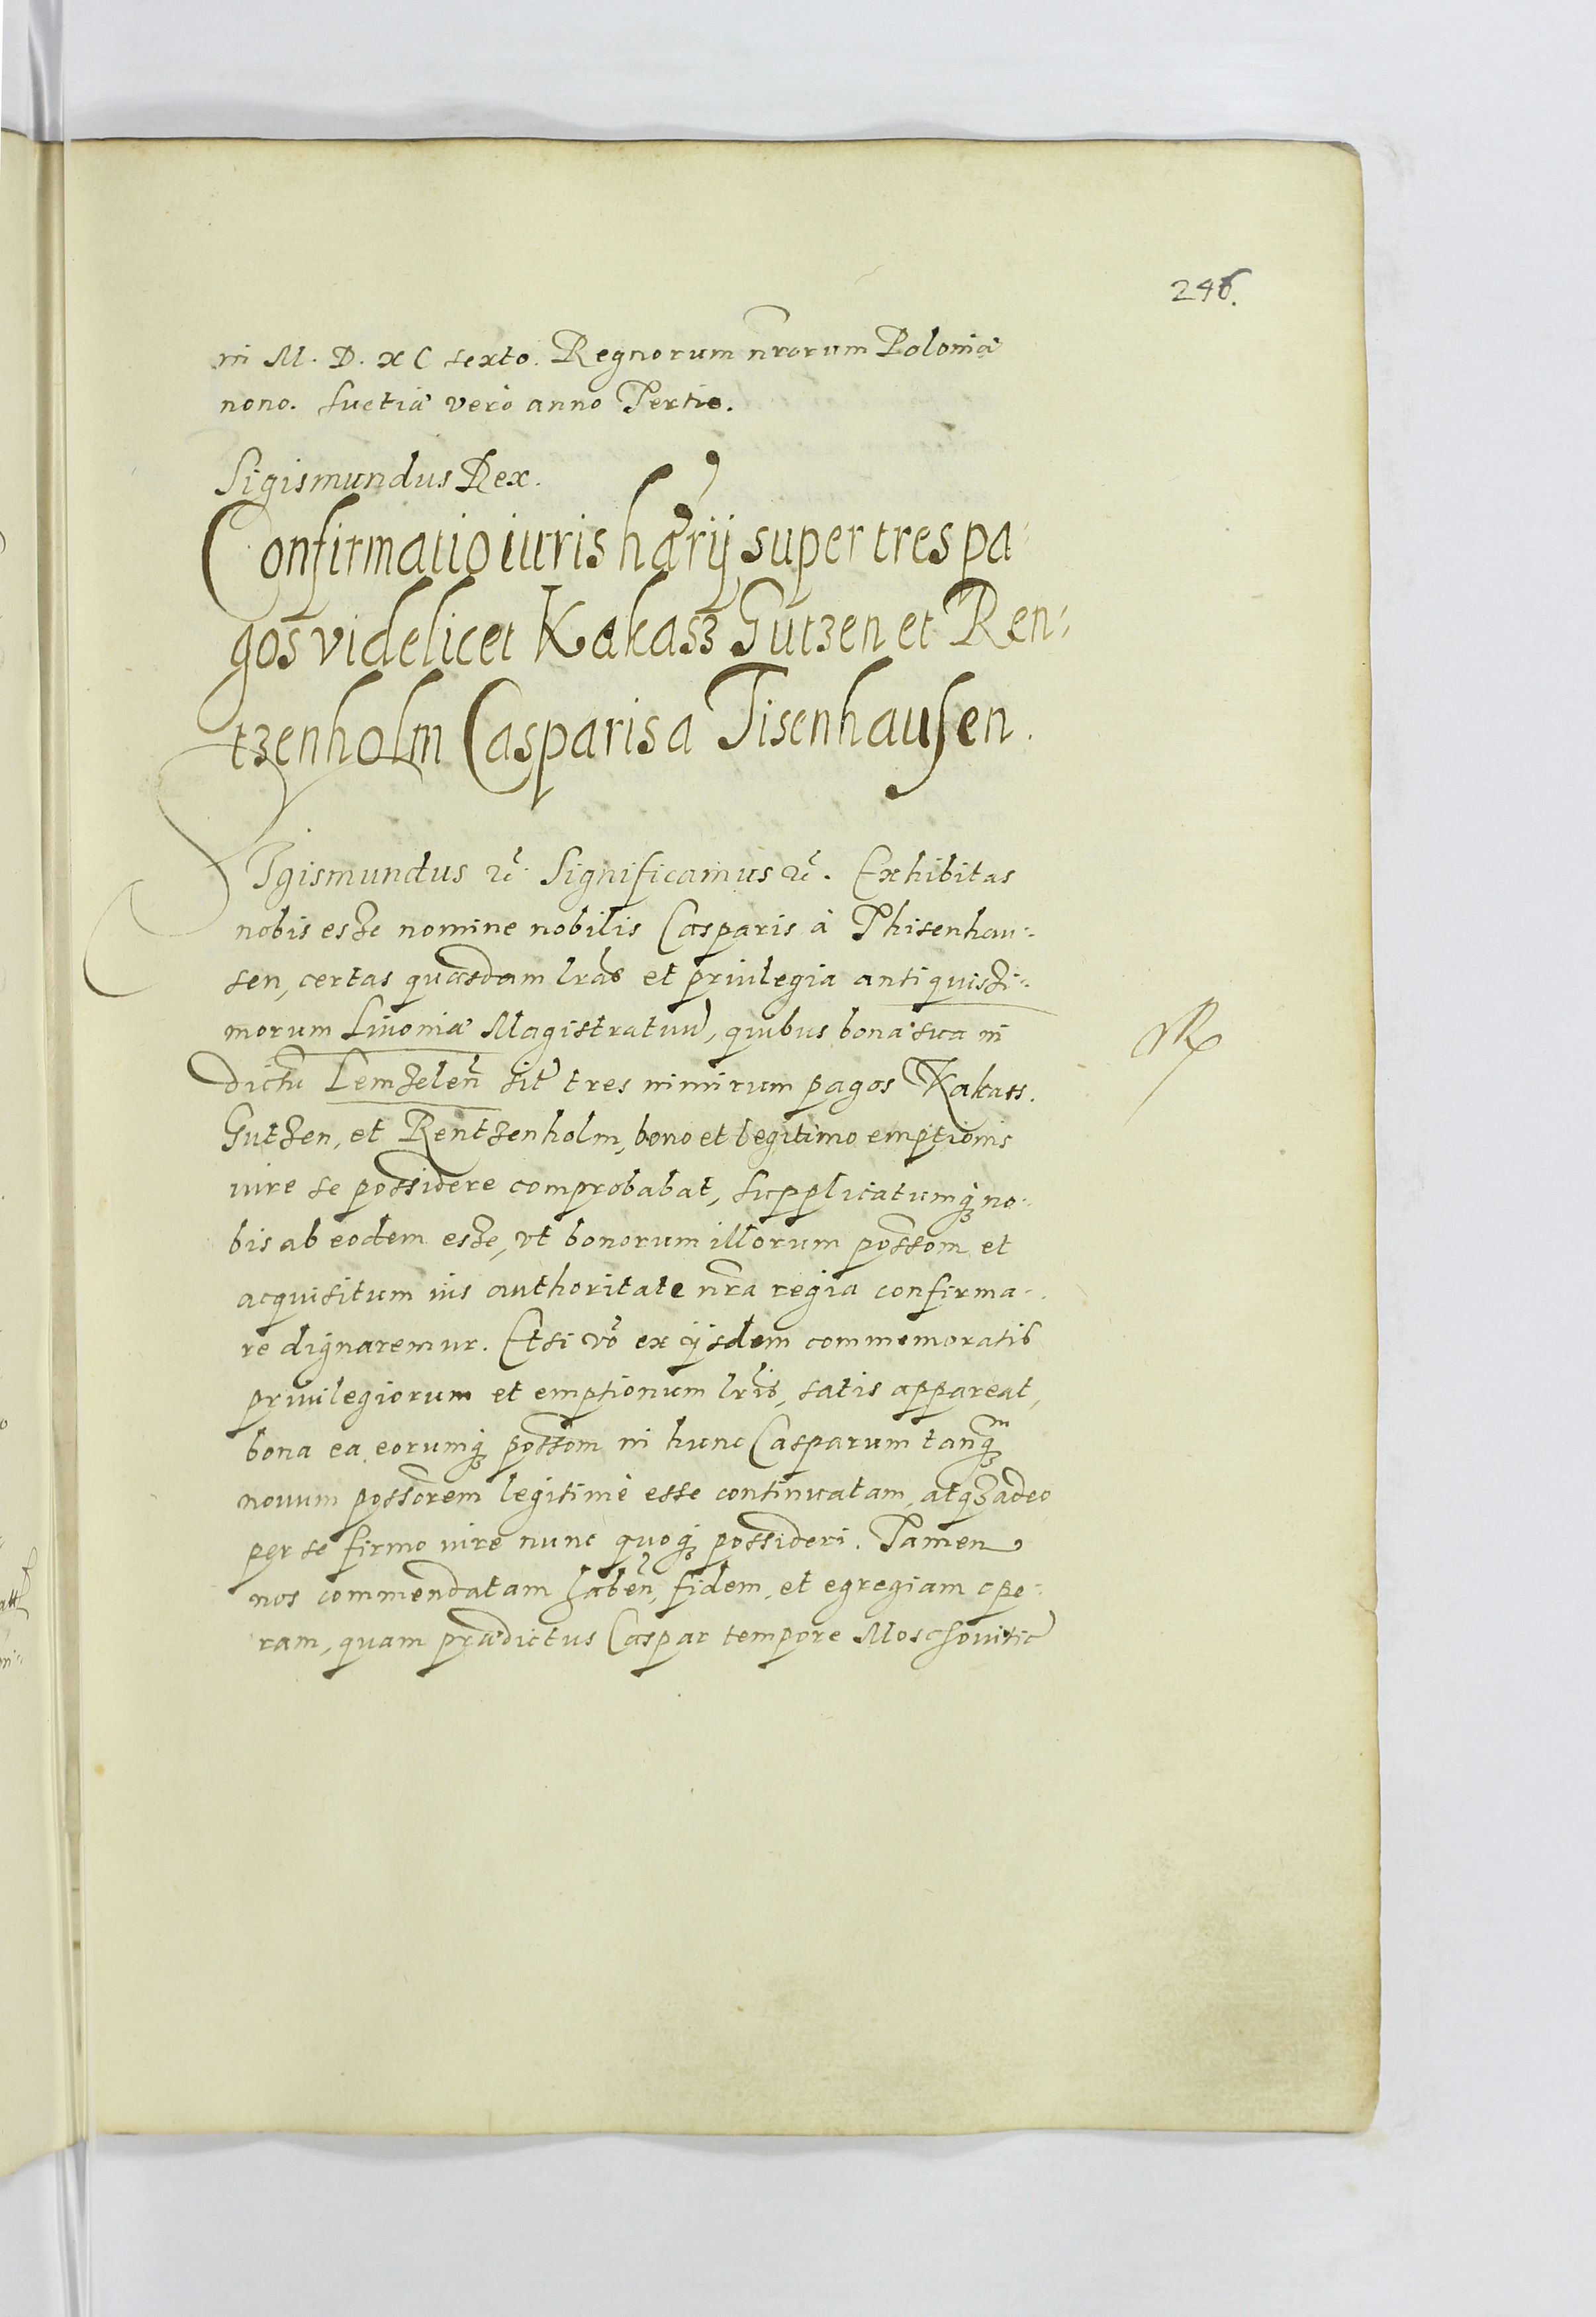 246.
ni M. D. xC sexto. Regnorum nrorum Poloniæ
nono. Suetiæ verò anno Tertio.
Sigismundus Rex.
Confirmatio iuris hærij super tres pa-
gos videlicet Kakasz Gutzen et Ren-
tzenholm Casparis a Tisenhausen.
SIgismundus etc. Significamus etc. Exhibitas
nobis esse nomine nobilis Casparis à Thisenhau-
sen, certas quasdam lras et priuilegia antiquissi-
morum Liuoniæ Magistratuu, quibus bona sua in
dictu Lemselen sit tres nimirum pagos Kakass.
Gutzen, et Rentzenholm, bono et legitimo emptionis
iure se possidere comprobabat, supplicatumq; no-
bis ab eodem esse, vt bonorum illorum possom et
acquisitum ius authoritate nra regia confirma-
re dignaremur. Etsi vo ex ijsdem commemoratis
priuilegiorum et emptionum lris, satis appareat,
bona ea eorumq; possom in hunc Casparum tanq;m
nouum possorem legitimè esse continuatam, atq; adeo
per se firmo iure nunc quoq; possideri. Tamen
nos commendatam haben, fidem, et egregiam ope-
ram, quam prædictus Caspar tempore Moschouitic